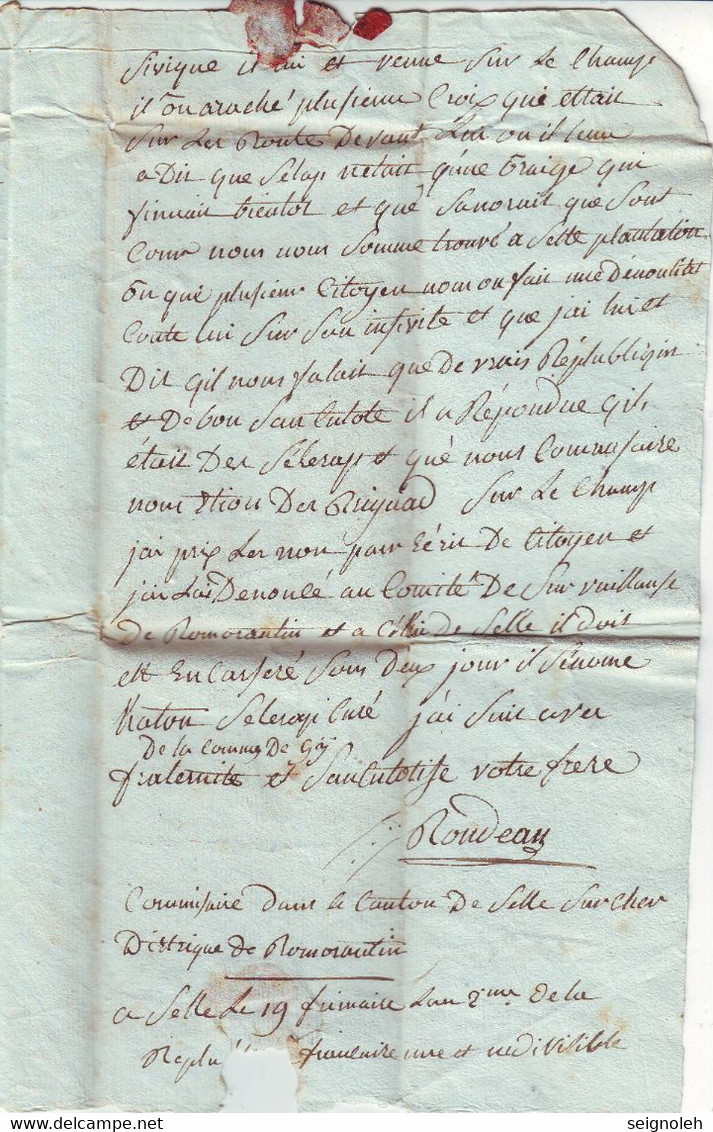 sivique il lui et venue sur le Champ
il on araché plusieure Croix que ettait
sur les Route Devant Lui ou il leur
a Dit que Selas netait qune oraige qui
finirait bientot et que sanorait que sont
Cour nous nous somme trouvé a Selle plantation
On qui plusieur Citoyen nom on fait une Dénontiet
Conte lui sur son insivite et que jai lui et
Dit qil nous falait que De vrais Républiqin
et De bon San Culote il a Répondue qils
était Des Sélerap et qué nous Commisaire
nous Etion Des Riguad sur Le Champ
jai prix Les non par Ecrit De Citoyen et
jai Lai Denoncé au Comité De Survaillanse
De Romorantin et a Cellui de Selle il doit
ett Encarseré sous Deux jour il sénome
Naton Selerap Curé jai suit avec
De la Commug De Giy
fraternité et Sanculotise votre frere
Rondeau
Commisaire dans le Canton De Selle sur Cher
Distrique de Romorantin
a Selle Le 19 frimaire Lan 2me de la
Replu franeaire une et indivisible
seignoleh